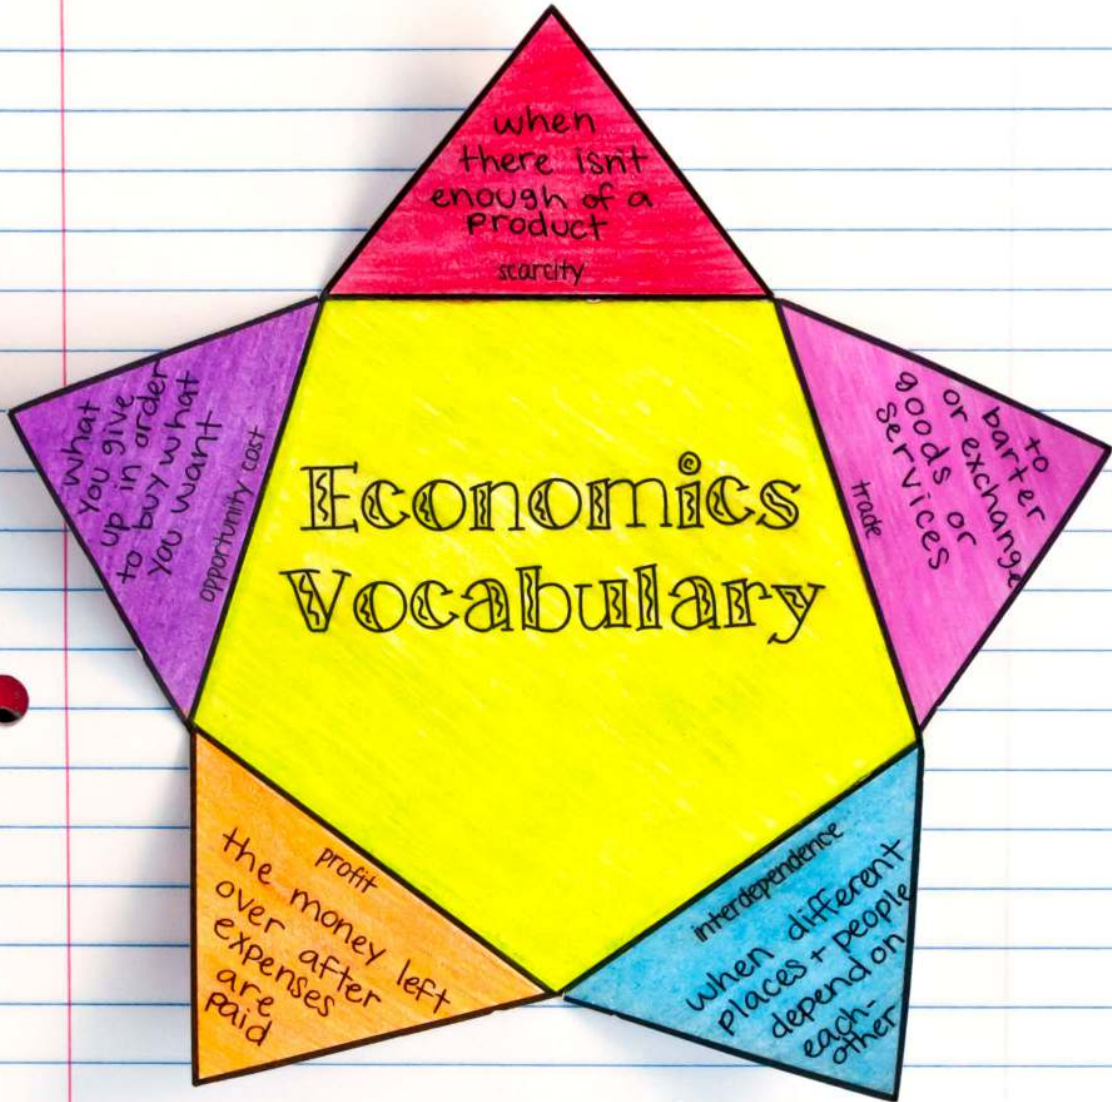 when
there isn't
enough of a
product
scarcity
what
you give
up in order
to buy what
you want
opportunity cost
Economics
Vocabulary
to
barter
or exchange
goods or
services
trade
profit
the money left
over after
expenses
are
paid
interdependence
when different
places + people
depend on
each-
other